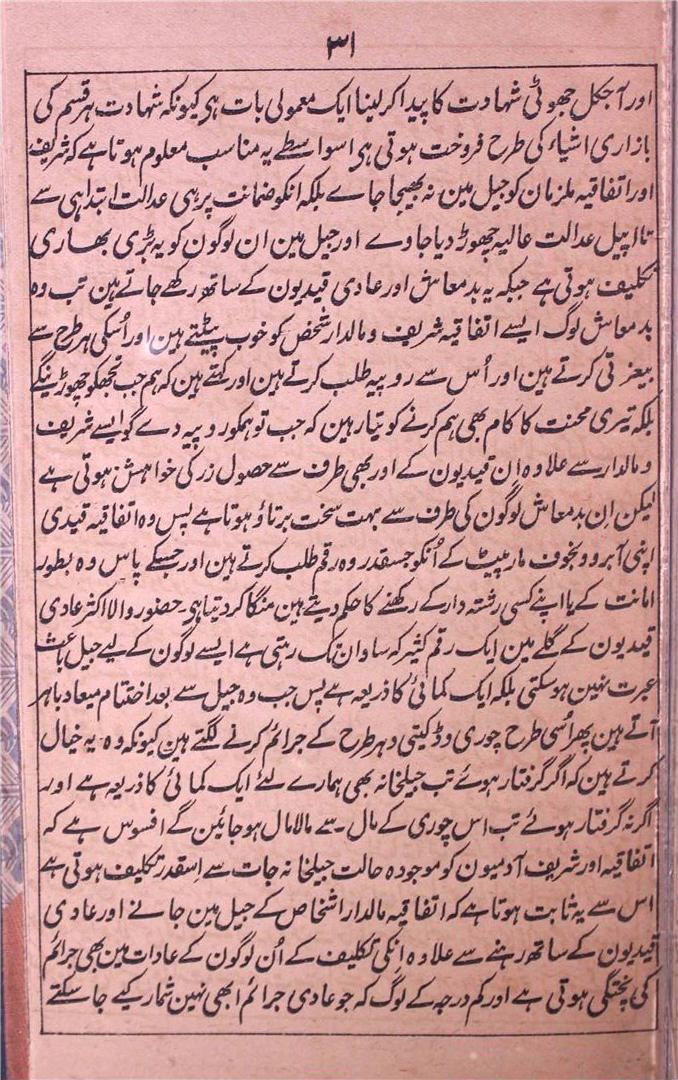 ۳۱
اور آجکل جھوٹی شہادت کا پیدا کر لینا ایک معمولی بات ہی کیونکہ شہادت ہر قسم کی
بازاری اشیاء کی طرح فروخت ہوتی ہی اسواسطے یہ مناسب معلوم ہوتا ہے کہ شریف
اور اتفاقیہ ملزمان کو جیل مین نہ بھیجا جاے بلکہ انکو ضمانت پر ہی عدالت ابتداہی سے
تا اپیل عدالت عالیہ چھوڑ دیا جاوے اور جیل مین ان لوگون کو یہ بڑی بھاری
تکلیف ہوتی ہے جبکہ یہ بدمعاش اور عادی قیدیون کے ساتھ رکھے جاتے ہین تب وہ
بدمعاش لوگ ایسے اتفاقیہ شریف و مالدار شخص کو خوب پیٹتے ہین اور اُسکی ہر طرح سے
بیعزتی کرتے ہین اور اُس سے روپیہ طلب کرتے ہین اور کہتے ہین کہ ہم جب تجھکو چھوڑینگے
بلکہ تیری محنت کا کام بھی ہم کرنے کو تیار ہین کہ جب تو ہمکو روپیہ دے گو ایسے شریف
و مالدار سے علاوہ اِن قیدیون کے اور بھی طرف سے حصول زر کی خواہش ہوتی ہے
لیکن اِن بدمعاش لوگون کی طرف سے بہت سخت برتاؤ ہوتا ہے پس وہ اتفاقیہ قیدی
اپنی آبرو و بخوف مارپیٹ کے اُنکو جسقدر وہ رقم طلب کرتے ہین اور جسکے پاس وہ بطور
امانت کے یا اپنے کسی رشتہ دار کے رکھنے کا حکم دیتے ہین منگا کر دیتا ہی۔ حضور والا اکثر عادی
قیدیون کے گلے مین ایک رقم کثیر کہ ساوان تک رہتی ہے ایسے لوگون کے لیے جیل باعث
عبرت نہین ہو سکتی بلکہ ایک کمائی کا ذریعہ ہے پس جب وہ جیل سے بعد اختتام میعاد باہر
آتے ہین پھر اُسی طرح چوری و ڈکیتی و ہر طرح کے جرائم کرنے لگتے ہین کیونکہ وہ یہ خیال
کرتے ہین کہ اگر گرفتار ہوئے تب جیلخانہ بھی ہمارے لئے ایک کمائی کا ذریعہ ہے اور
اگر نہ گرفتار ہوئے تب اس چوری کے مال سے مالا مال ہو جائین گے افسوس ہے کہ
اتفاقیہ اور شریف آدمیون کو موجودہ حالت جیلخانہ جات سے اسقدر تکلیف ہوتی ہے
اس سے یہ ثابت ہوتا ہے کہ اتفاقیہ مالدار اشخاص کے جیل مین جانے اور عادی
قیدیون کے ساتھ رہنے سے علاوہ اِنکی تکلیف کے اُن لوگون کے عادات مین بھی جرائم
کی پختگی ہوتی ہے اور کم درجہ کے لوگ کہ جو عادی جرائم ابھی نہین شمار کیے جا سکتے